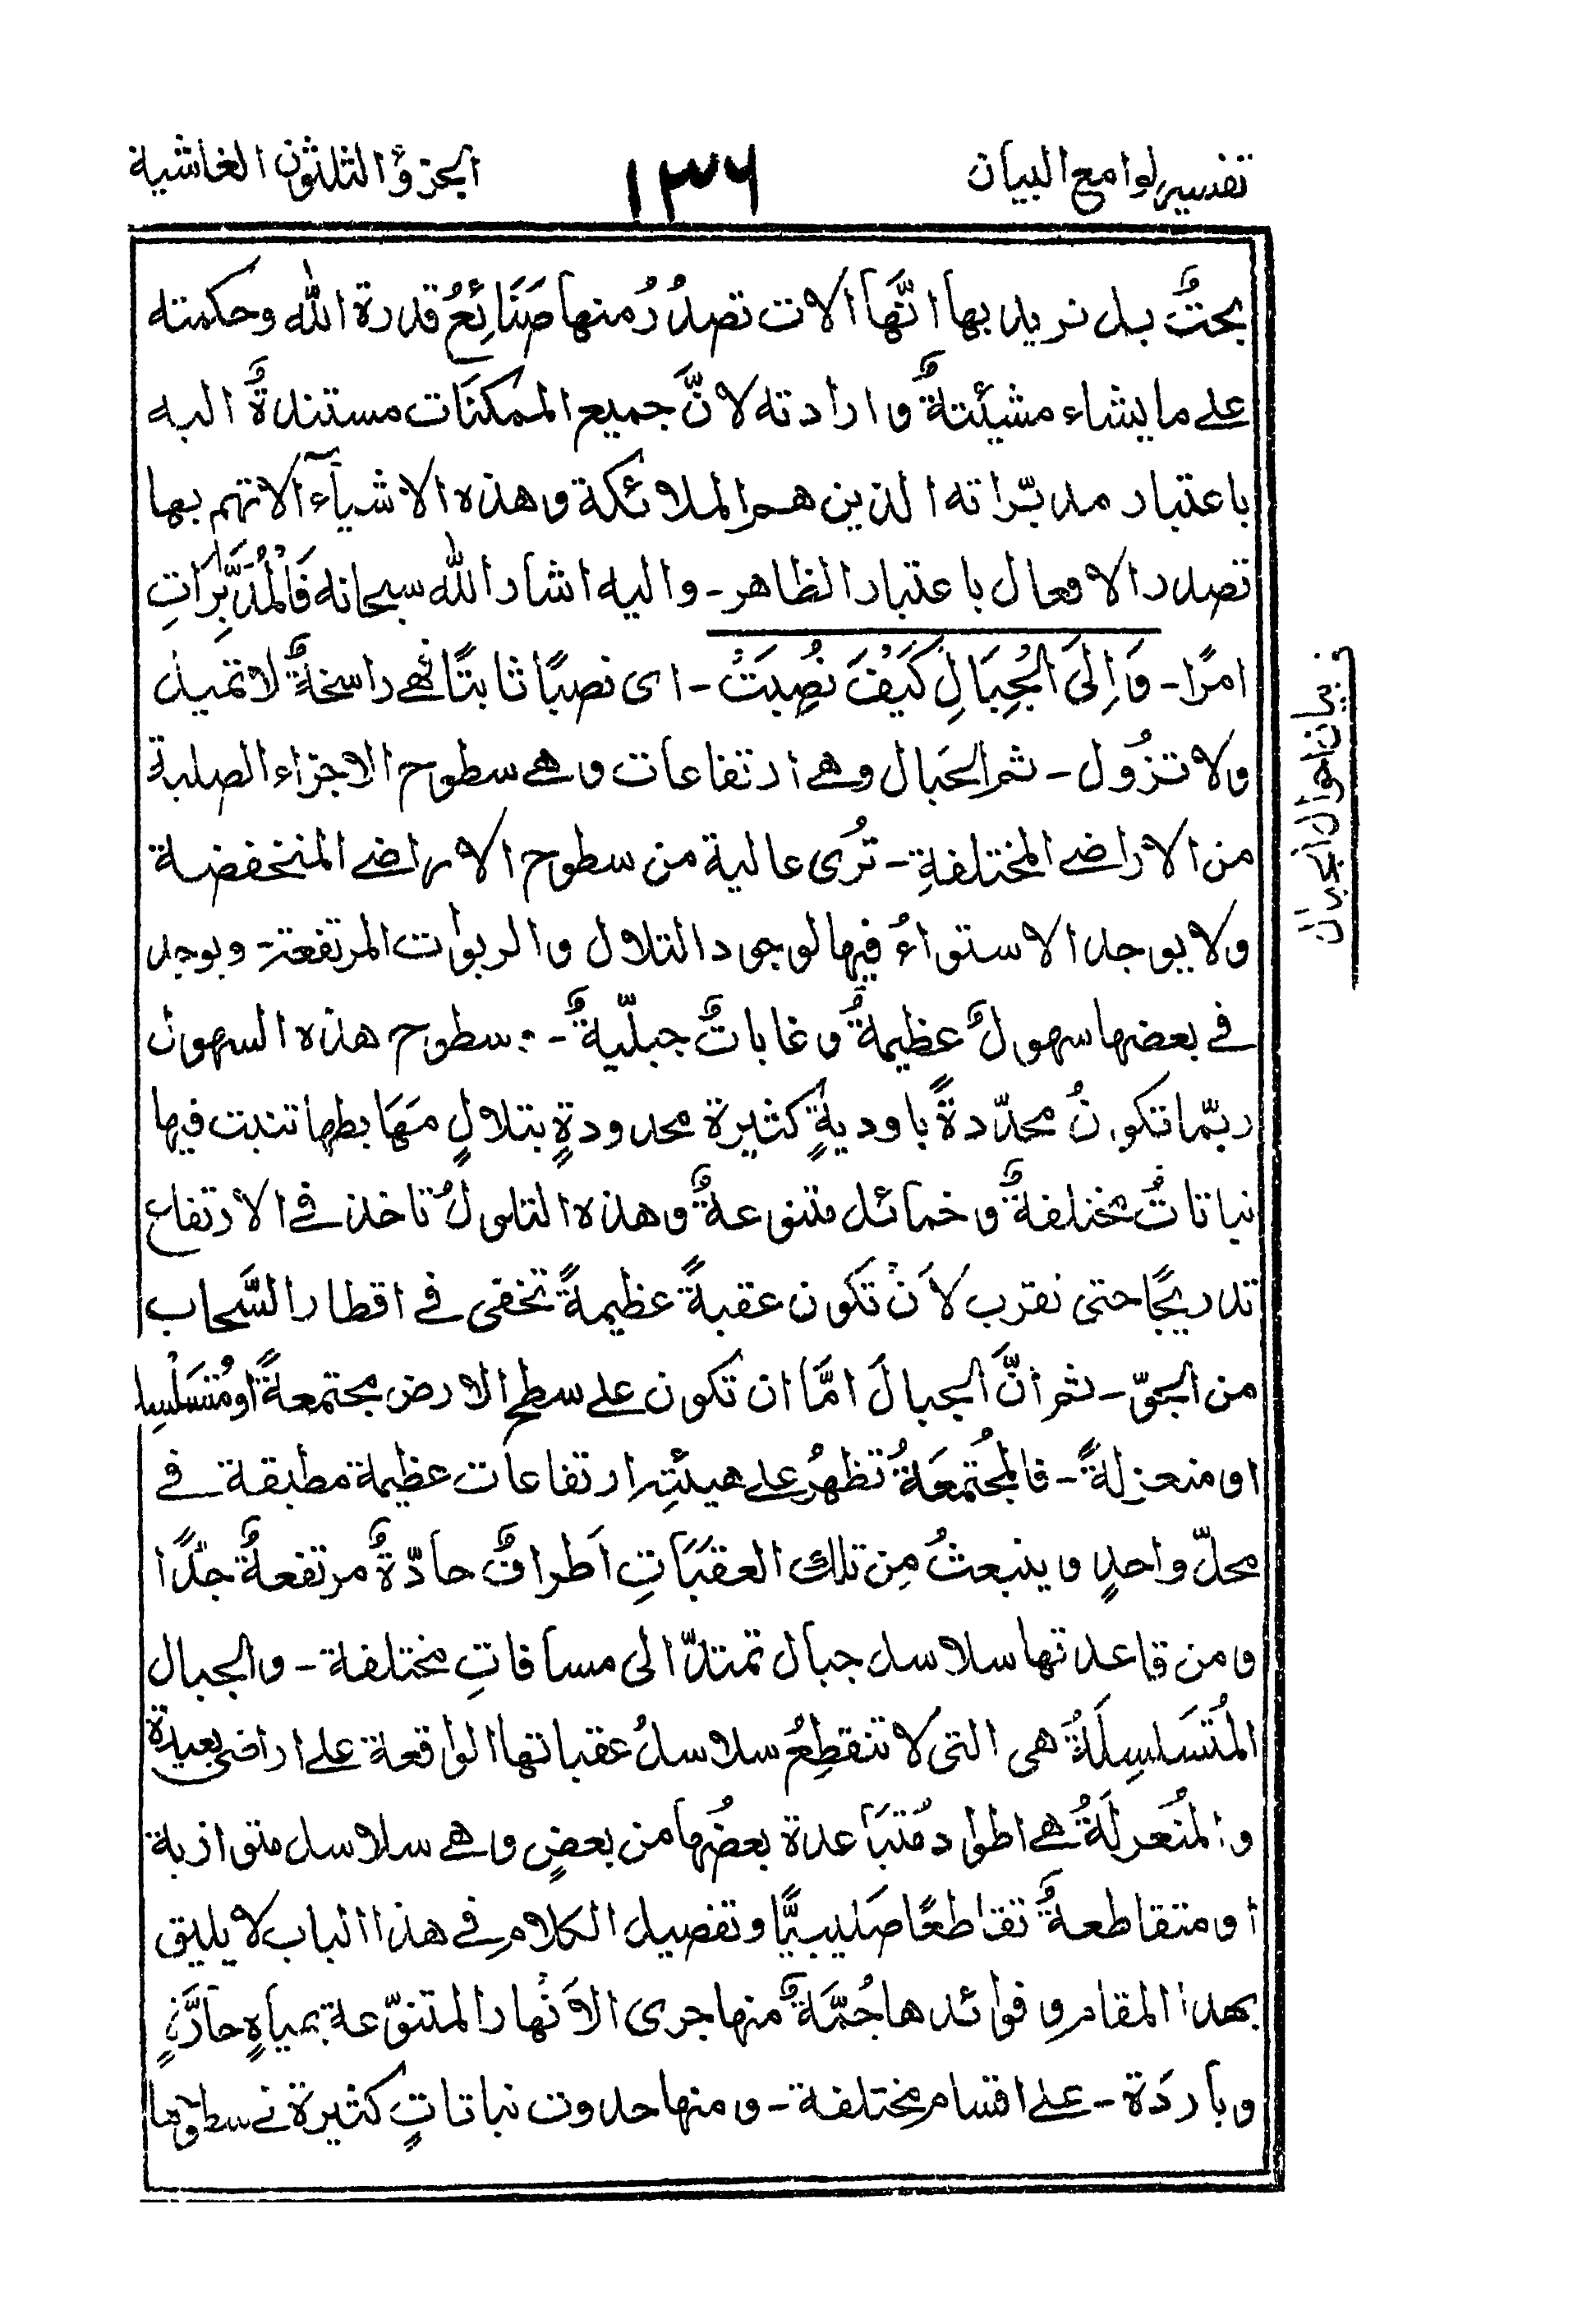 تفسير لوامع البيان ١٣٦ الجزؤ الثلثون الغاشية
بحتٌ بل نريد بها انّها الات تصدُرُ منها صَنَائِعُ قدرة الله وحكمته
على ما يشاء مشيئتهٌ و ارادته لانَّ جميع الممكنات مستندةٌ اليه
باعتبار مدبّراته الذين هم الملائكة و هذه الاشيآء الاتهم بها
تصدر الافعال باعتبار الظاهر - و اليه اشار الله سبحانه فَالْمُدَبِّرَاتِ
امرًا - وَ اِلَى الْجِبَالِ كَيْفَ نُصِبَتْ - اى نصبًا ثابتًا فهى راسخةٌ لا تميل
و لا تزُول - ثم الجبال وهى ارتفاعات و هى سطوح الاجزاء الصلبة
من الاراضى المختلفةِ - تُرى عالية من سطوح الاراضى المنخفضة
و لا يوجد الاستواءُ فيها لوجود التلال و الربوات المرتفعة - و يوجد
فى بعضها سهولٌ عظيمةٌ و غاباتٌ جبليّةٌ - و سطوح هذه السهول
ربّما تكونُ محدّدةً باوديةٍ كثيرة محدودةٍ بتلالٍ مَهَابطها تنبت فيها
نباتاتٌ مختلفةٌ و خمائل متنوعةٌ و هذه التلولُ تاخذ فى الارتفاع
تدريجًا حتى تقرب لاَنْ تكون عقبةً عظيمةً تخفى فى اقطار السَّحاب
من الجوّ - ثم انَّ الجبالَ امَّا ان تكون على سطح الارض مجتمعةً او مُتَسَلْسِلة
او منعزلةً - فالمجُتمعَةُ تظهرُ على هيئةِ ارتفاعات عظيمة مطبقة فى
محلّ واحدٍ و ينبعثُ مِن تلك العقَبَاتِ اَطرافٌ حادّةٌ مرتفعةٌ جدًّا
و من قاعدتها سلاسل جبال تمتدّ الى مسافاتِ مختلفة - و الجبال
المُتَسَلسِلَةُ هى التى لا تنقطِعُ سلاسلُ عقباتها الواقعة على اراضى بعيدة
و المنُعزلَةُ هى اطواد مُتبَاعدة بعضُها من بعضٍ و هى سلاسل متوازية
او متقاطعةٌ تقاطعًا صَليبيًّا و تفصيل الكلام فى هذا الباب لا يليق
بهذا المقام و فوائدها جُمَّةٌ منها جرى الاَنْهار المتنوّعة بمياهٍ حارَّةٍ
و باردَة - على اقسام مختلفة - و منها حدوث نباتاتٍ كثيرة فى سطوحها
فى بيان احوال الجبال